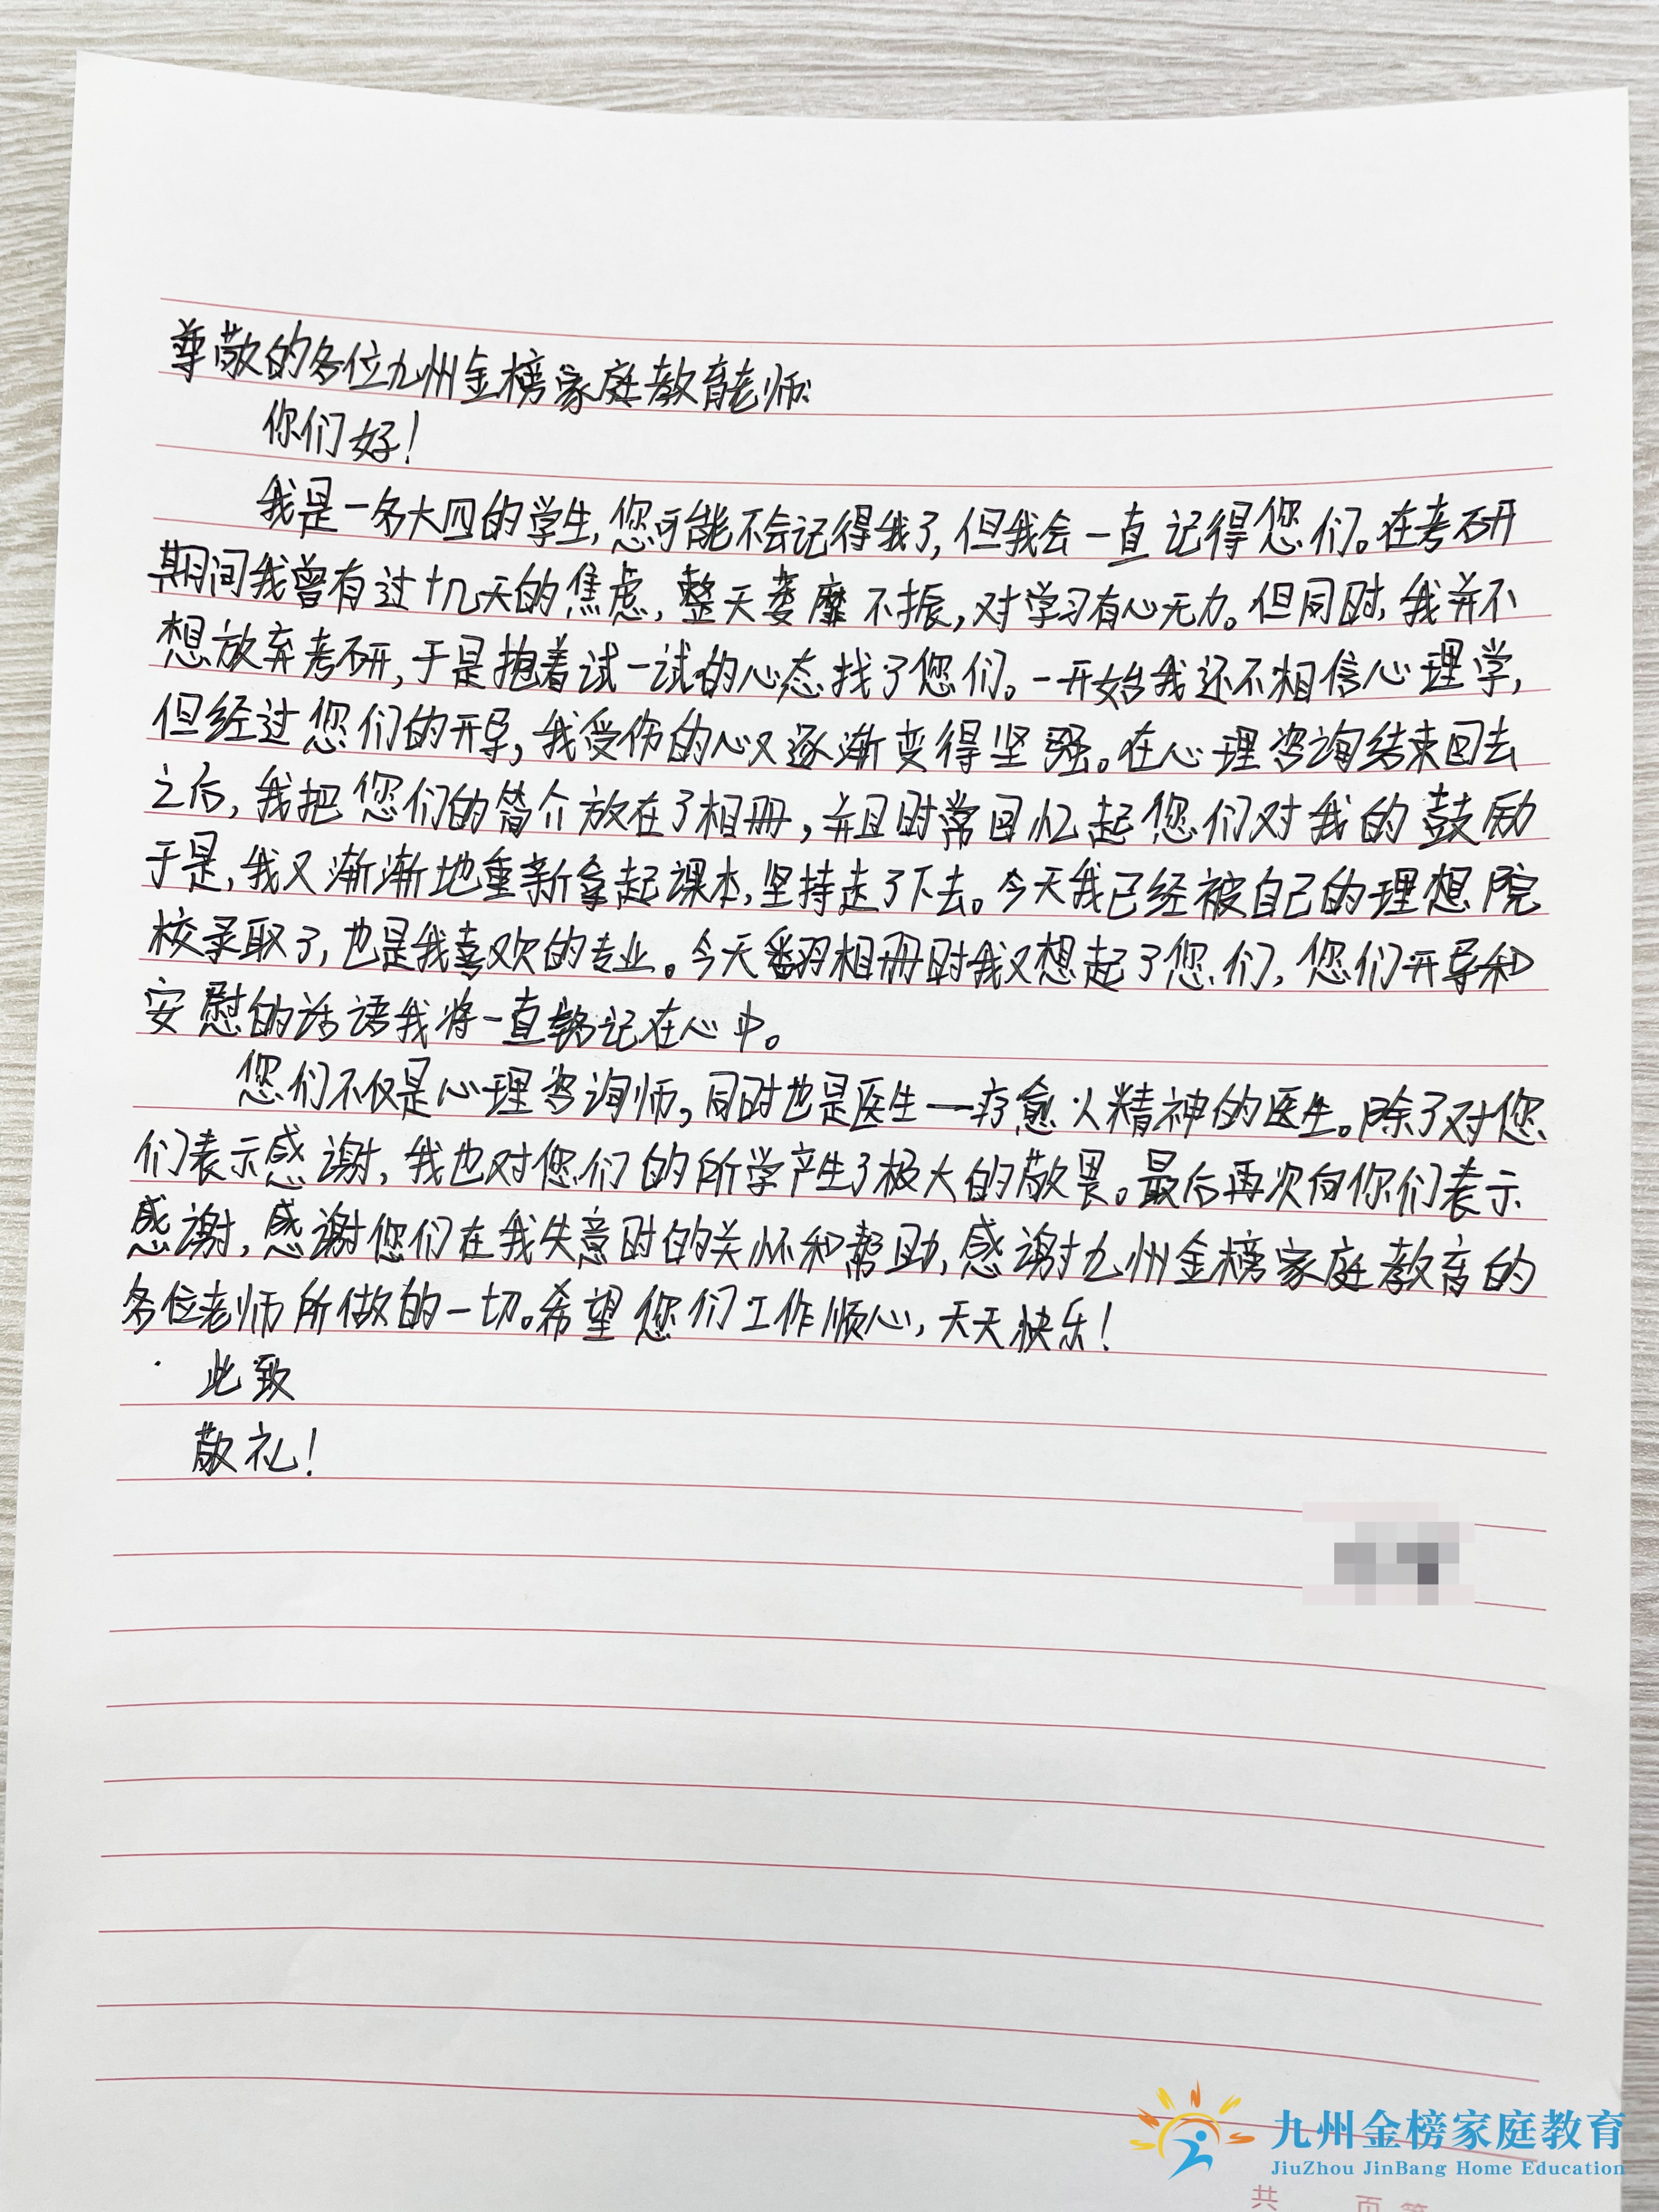 尊敬的各位九州金榜家庭教育老师:
你们好!
我是一名大四的学生,您可能不会记得我了,但我会一直记得您们。在考研
期间我曾有过十几天的焦虑,整天萎靡不振,对学习有心无力。但同时,我并不
想放弃考研,于是抱着试一试的心态找了您们。一开始我还不相信心理学,
但经过您们的开导,我受伤的心又逐渐变得坚强。在心理咨询结束回去
之后,我把您们的简介放在了相册,并且时常回忆起您们对我的鼓励
于是,我又渐渐地重新拿起课本,坚持走了下去。今天我已经被自己的理想院
校录取了,也是我喜欢的专业。今天翻相册时我又想起了您们,您们开导和
安慰的话语我将一直铭记在心中。
您们不仅是心理咨询师,同时也是医生—疗愈人精神的医生。除了对您
们表示感谢,我也对您们的所学产生了极大的敬畏。最后再次向你们表示
感谢,感谢您们在我失意时的关怀和帮助,感谢九州金榜家庭教育的
各位老师所做的一切。希望您们工作顺心,天天快乐!
此致
敬礼!
九州金榜家庭教育
JiuZhou JinBang Home Education
共 页第